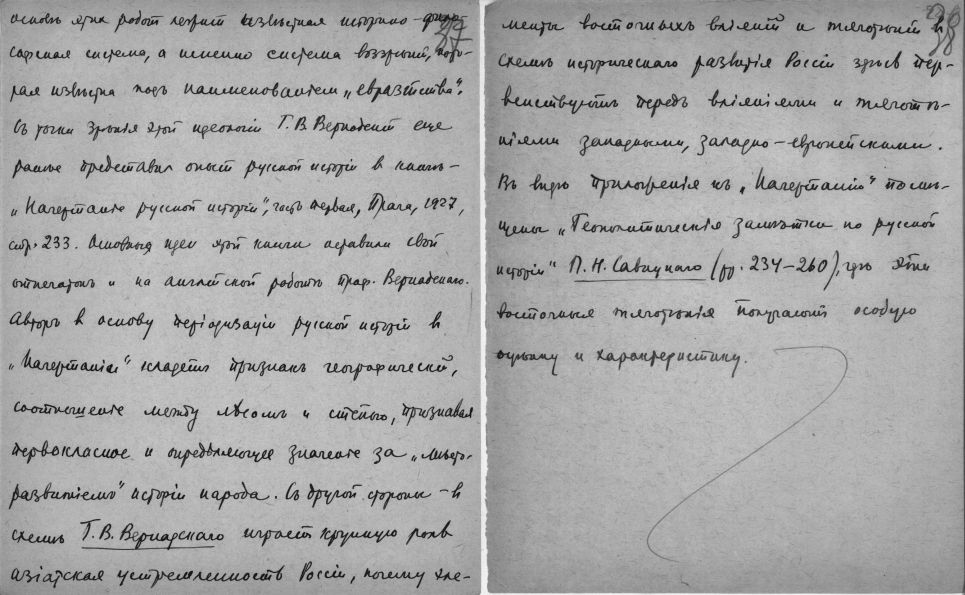 основѣ этихъ работ лежитъ извѣстная историко-фило-
37
софская система, а именно система воззрѣній, кото-
рая извѣстна подъ наименованіемъ „евразiйства“.
Съ точки зрѣнія этой идеологіи Г. В. Вернадскій еще
ранѣе представилъ опытъ русской исторіи в книгѣ –
„Начертаніе русской исторіи“, часть первая, Прага, 1927,
стр. 233. Основныя идеи этой книги оставили свой
отпечатокъ и на англійской работѣ проф. Вернадскаго.
Авторъ в основу періодизаціи русской исторіи в
„Начертаніи“ кладетъ признакъ географическій,
соотношеніе между лѣсомъ и степью, признавая
первоклассное и опредѣляющее значеніе за „мѣсто-
развитіемъ“ исторіи народа. Съ другой стороны – в
схемѣ Г. В. Вернадскаго играетъ крупную роль
азіатская устремленность Россіи, почему эле-
менты восточныхъ вліяній и тяготѣній в
38
схемѣ историческаго развитія Россіи здѣсь пер-
венствуютъ передъ вліяніями и тяготѣ-
ніями западными, западно-европейскими.
Въ видѣ приложенія къ „Начертанію“ помѣ-
щены „Геополитическія замѣтки по русской
исторіи“ П. Н. Савицкаго (стр. 234–260), гдѣ эти
восточныя тяготѣнія получаютъ особую
оцѣнку и характеристику.